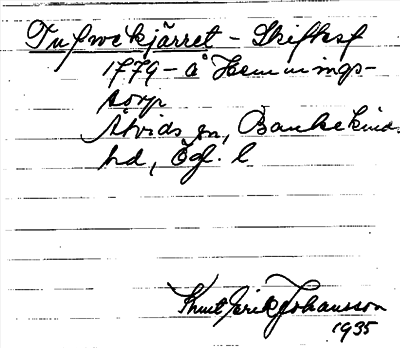 Tufwekjärret - Skifksf
1779 - å Hemmings-
torp
Åtvids sn, Bankekinds
hd, Ögl. l
Knut Erik Johansson
1935